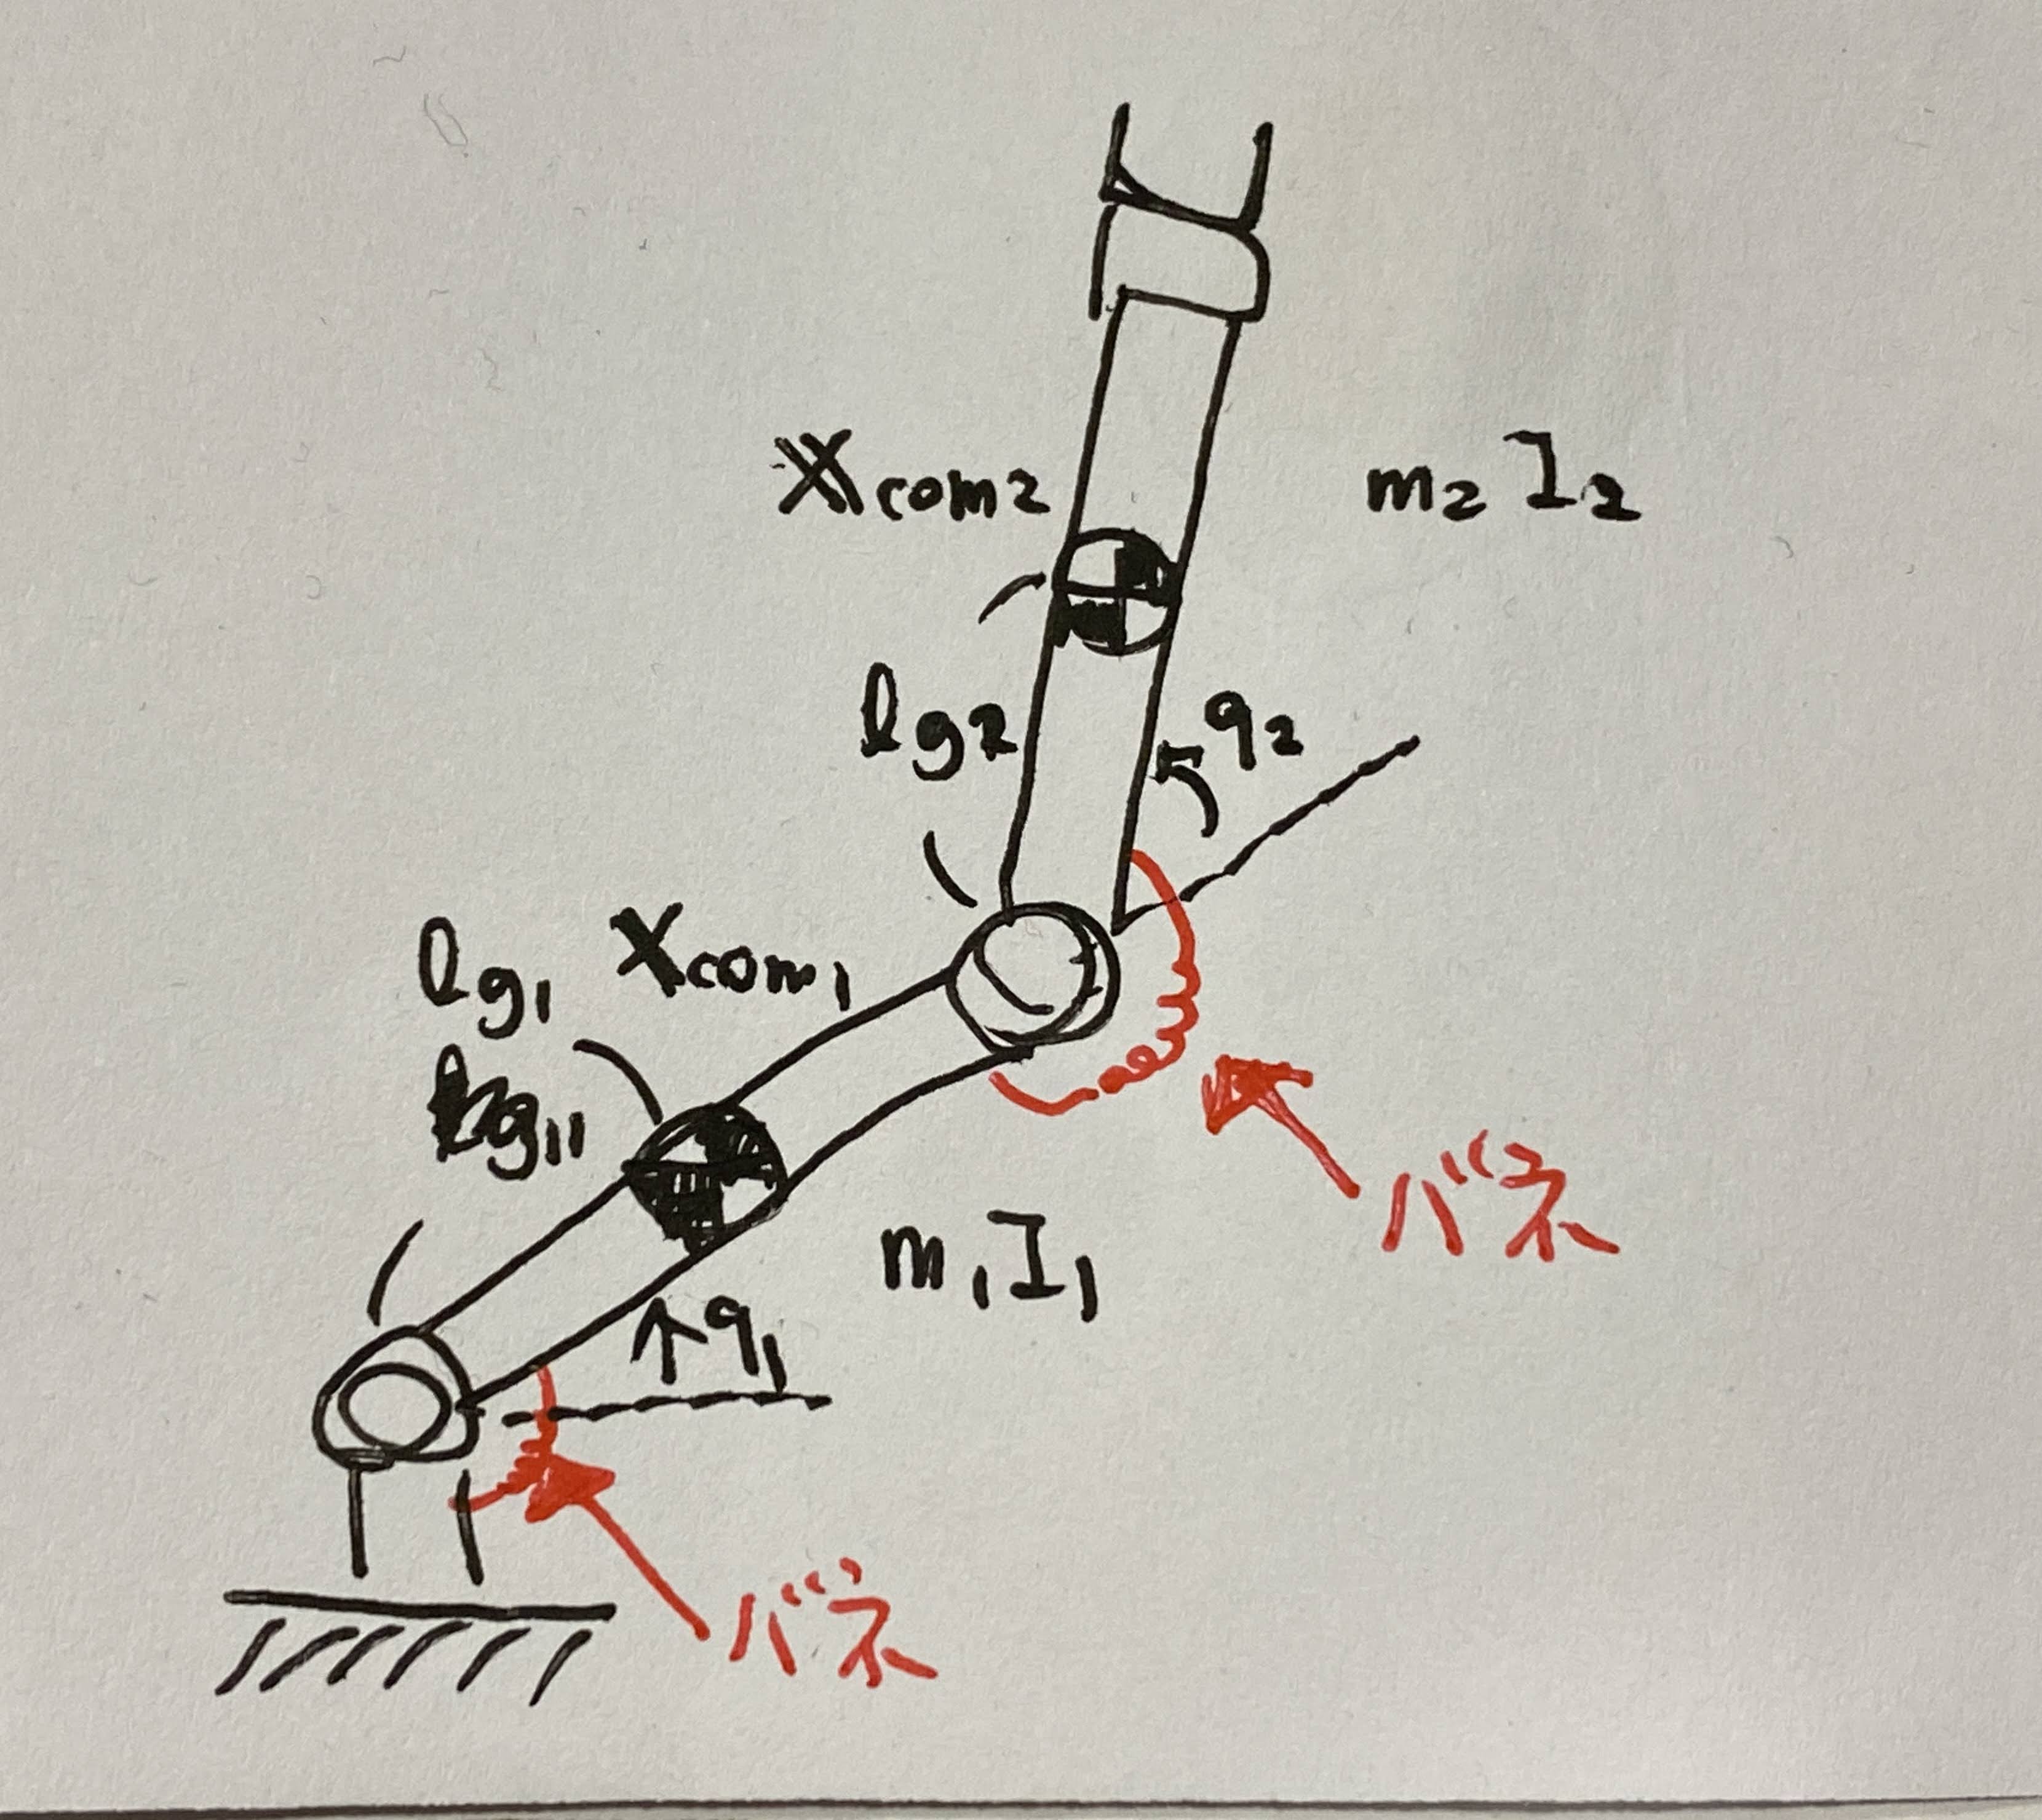 Xcom2
m2 I2
lg2
q2
lg1 Xcom1
バネ
m1 I1
q1
バネ